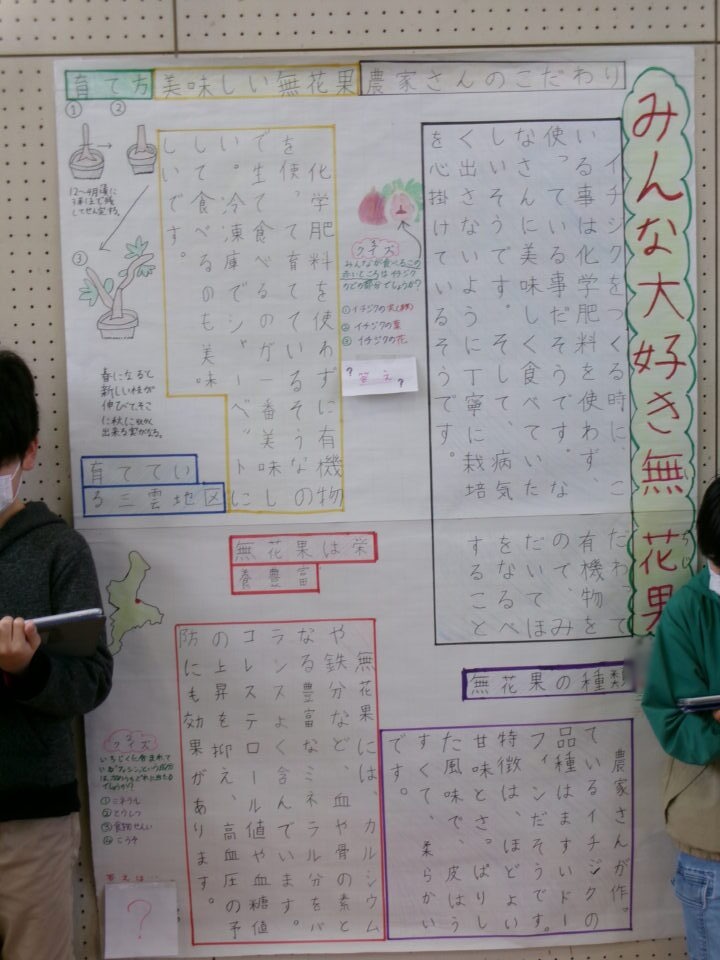 みんな大好き無花果
農家さんのこだわり
イチジクをつくる時に、こだわって
いる事は化学肥料を使わず、有機物を
使っている事だそうです。なので、み
なさんに美味しく食べていただいてほ
しいそうです。そして、病気をなるべ
く出さないように丁寧に栽培すること
を心掛けているそうです。
クイズ
みんなが食べるこの
赤いところはイチジク
のどの部分でしょうか?
①イチジクの実
②イチジクの葉
③イチジクの花
?答え?
美味しい無花果
化学肥料を使わずに有機物
を使って育てているそうなの
で生で食べるのが一番美味し
い。冷凍庫でシャーベットに
して食べるのも美味
しいです。
育て方
①
②
12~4月頃に
3本ほど残
してせん定する。
③
春になると
新しい枝が
伸びてそこ
に秋に
出来る実がなる。
育ててい
る三雲地区
無花果は栄
養豊富
無花果には、カルシウム
や鉄分など、血や骨の素と
なる豊富なミネラル分をバ
ランスよく含んでいます。
コレステロール値や血糖値
の上昇を抑え、高血圧の予
防にも効果があります。
クイズ
いちじくに含まれて
いる"フィシン"という成分
は、次のうちどれに当たる
でしょうか?
①ミネラル
②とうしつ
③食物せんい
④こうそ
答えは…
?
無花果の種類
農家さんが作っ
ているイチジクの
品種はますいドー
フィンだそうです。
特徴は、ほどよい
甘味とさっぱりし
た風味で、皮はう
すくて、柔らかい
です。